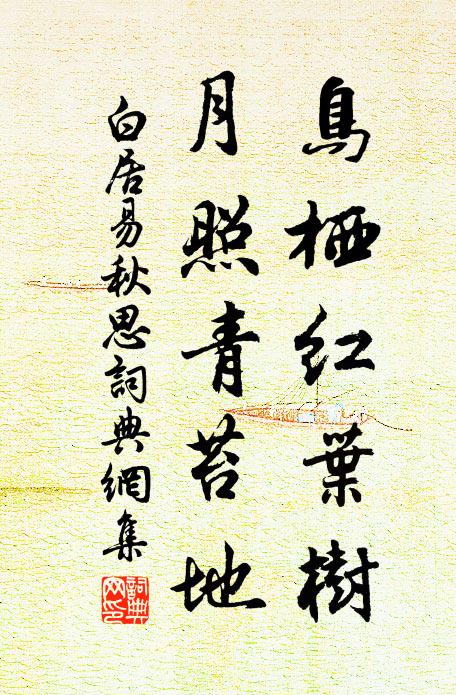 鳥栖紅葉樹
月照青苔地
白居易秋思詞典網集
詞典
网印